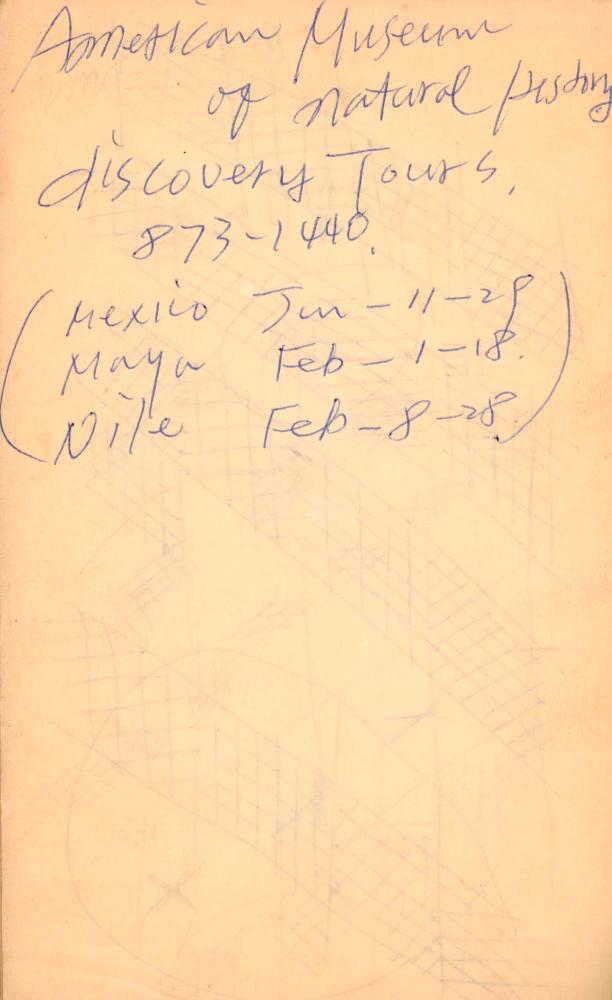 American Museum
of natural history
discovery Tours,
873-1440.
(Mexico Jan - 11-29
Maya Feb - 1-18.
Nile Feb - 8-28.)